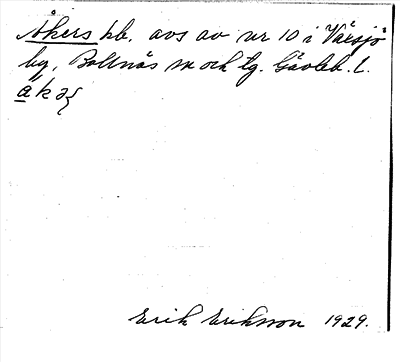 Åkers hb. avs av nr 10 i Växsjö
by, Bollnäs sn och tg. Gävleb. l.
åkəʃ
Erik Eriksson 1929.